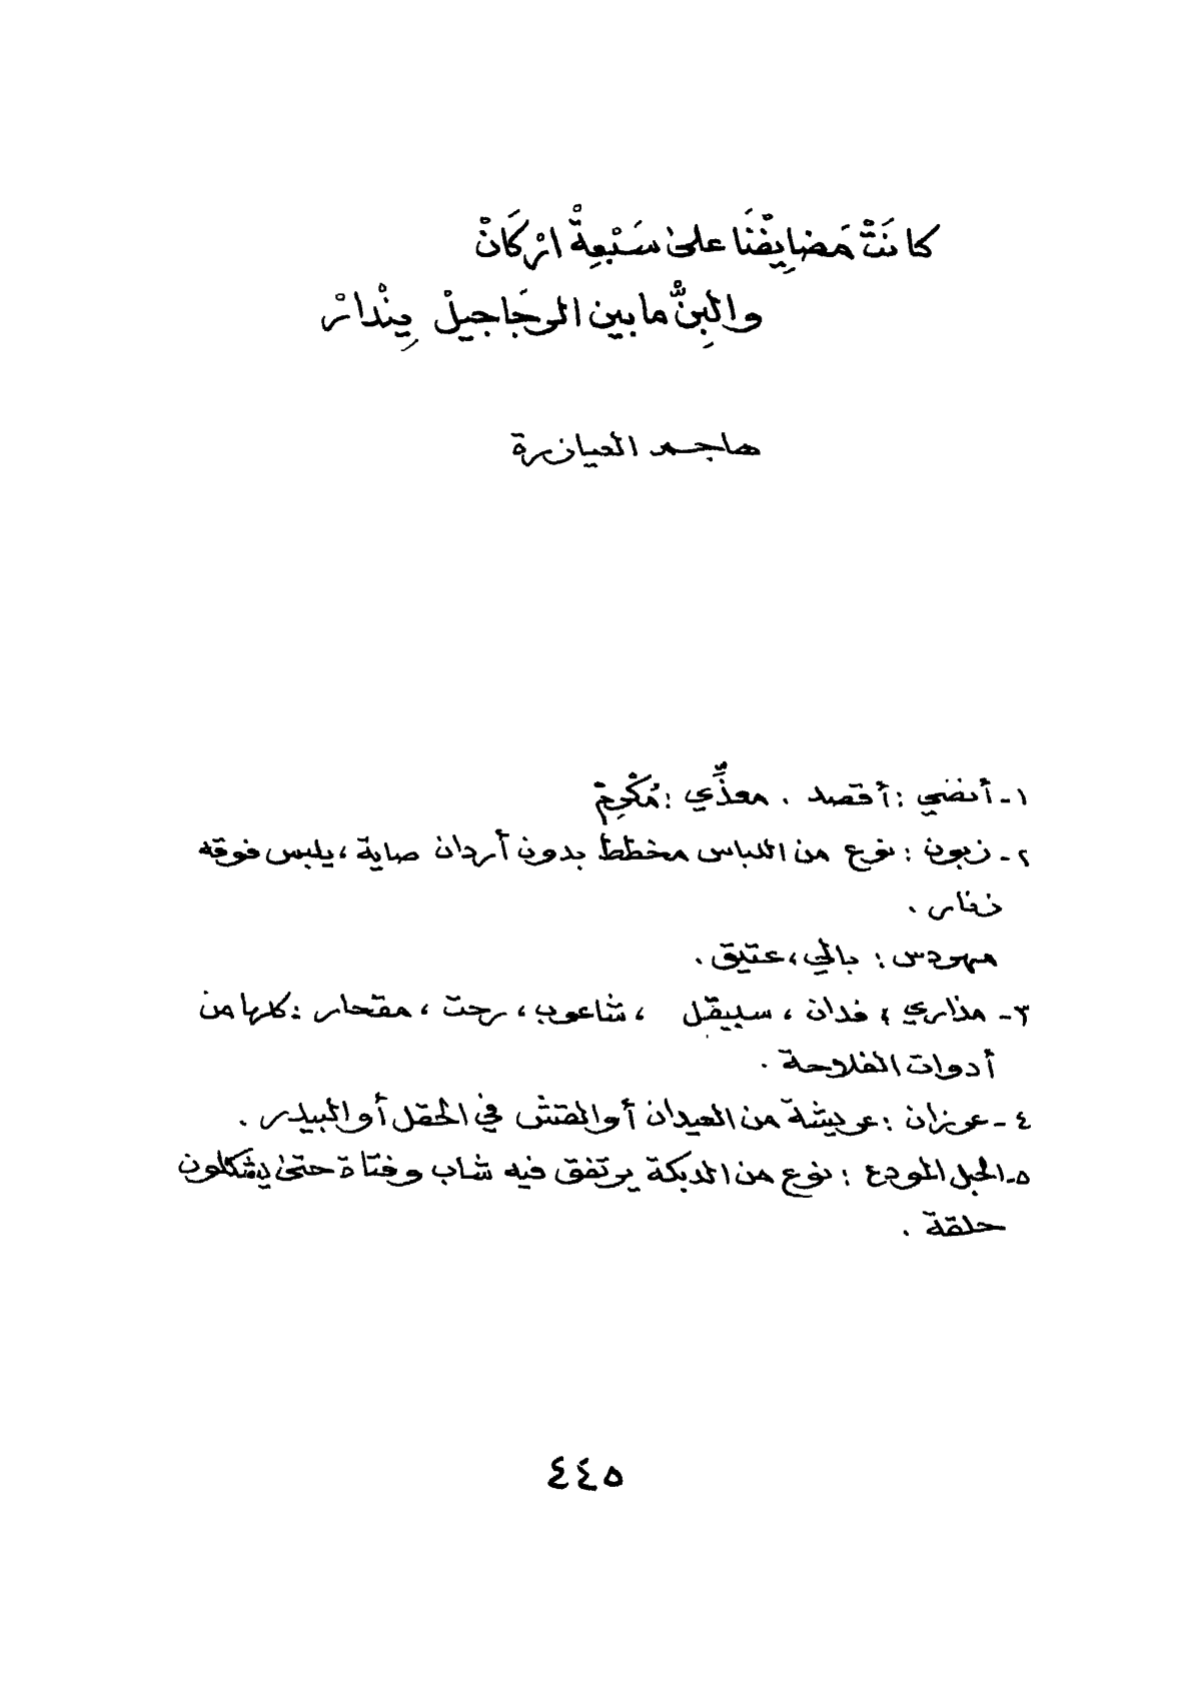 كانَتْ مَضايِفْنَا على سَبْعِةْ ارْكَانْ
والبِنّْ ما بين الرجَاجيلْ يِنْدارْ
هاجم العيازرة
١- أنضي : أقصد . معذِّي : مُكْرِمْ
٢- زبون : نوع من اللباس مخطط بدون أردان صاية ، يلبس فوقه
زنار .
مهودس : بالي ، عتيق .
٣- مذاري ؛ فدان ، سبيقل ، شاعوب ، رحت ، مقحار : كلها من
أدوات الفلاحة .
٤- عرزان : عريشة من العيدان أو القش في الحقل أو البيدر .
٥- الحبل المودع : نوع من الدبكة يرتفق فيه شاب وفتاة حتى يشكلون
حلقة .
٤٤٥